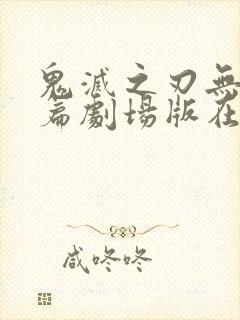 鬼滅之刃無
篇劇場版在
咸咚咚